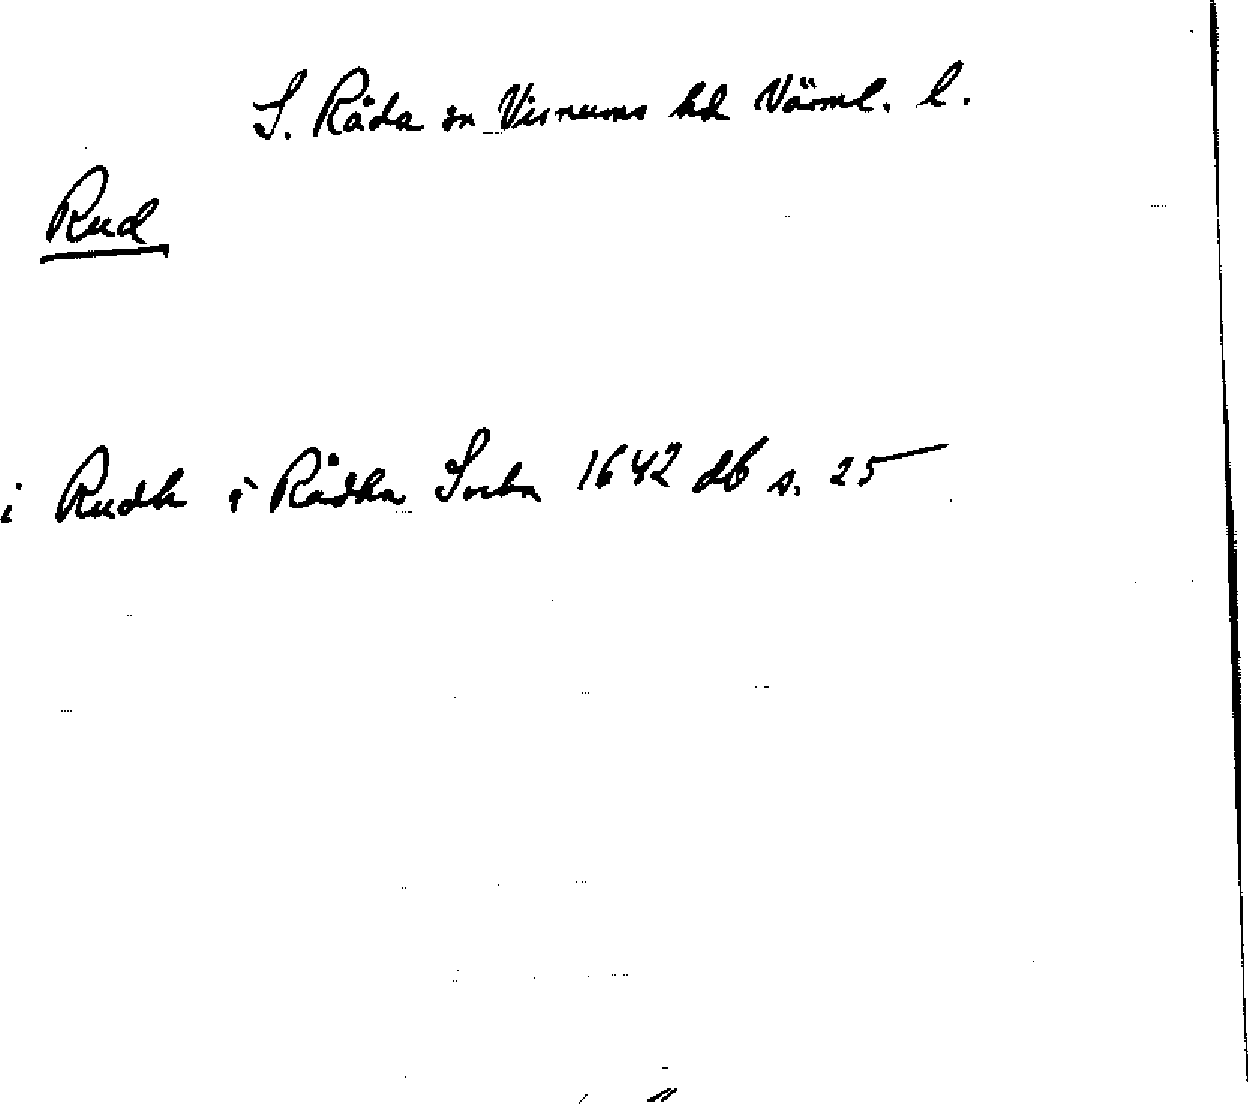 S. Råda sn Visnums hd Värml. l.
Rud
i Rudh i Rådha Sockn 1642 db s. 25